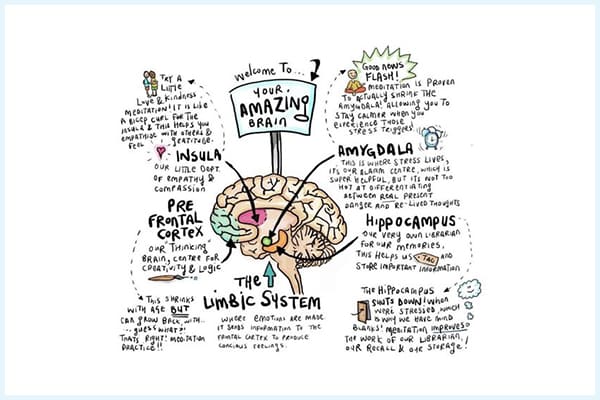 Welcome to...
YOUR
AMAZING
BRAIN
TRY A
LITTLE
LOVE & KINDNESS
MEDITATION! IT IS LIKE
A BICEP CURL FOR THE
INSULA & THIS HELPS YOU
EMPATHISE WITH OTHERS &
FEEL GRATITUDE.
INSULA
OUR LITTLE DEPT.
OF EMPATHY &
COMPASSION
PRE
FRONTAL
CORTEX
OUR THINKING
BRAIN, CENTRE FOR
CREATIVITY & LOGIC
THIS SHRINKS
WITH AGE BUT
CAN GROW BACK, WITH...
...GUESS WHAT?!
THATS RIGHT! MEDITATION
PRACTICE!!
THE
LIMBIC SYSTEM
WHERE EMOTIONS ARE MADE.
IT SENDS INFORMATION TO THE
FRONTAL CORTEX TO PRODUCE
CONCIOUS FEELINGS.
GOOD NEWS
FLASH!
MEDITATION IS PROVEN
TO ACTUALLY SHRINK THE
AMYGDALA! ALLOWING YOU TO
STAY CALMER WHEN YOU
EXPERIENCE THOSE
STRESS TRIGGERS
AMYGDALA
THIS IS WHERE STRESS LIVES,
IT'S OUR ALARM CENTRE, WHICH IS
SUPER HELPFUL, BUT IT'S NOT TOO
HOT AT DIFFERENTIATING
BETWEEN REAL PRESENT
DANGER AND RE-LIVED THOUGHTS
HIPPOCAMPUS
OUR VERY OWN LIBRARIAN
FOR OUR MEMORIES,
THIS HELPS US TAG AND
STORE IMPORTANT INFORMATION
THE HIPPOCAMPUS
SHUTS DOWN! WHEN
WERE STRESSED, WHICH
IS WHY WE HAVE MIND
BLANKS! MEDITATION IMPROVES
THE WORK OF OUR LIBRARIAN,
OUR RECALL & OUR STORAGE!